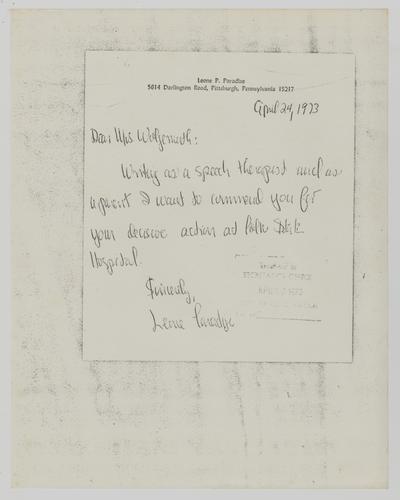 Leone P. Paradise
5614 Darlington Road, Pittsburgh, Pennsylvania 15217
April 24, 1973
Dear Mrs Wohlgemuth:
Writing as a speech therapist and as
a parent I want to commend you for
your decisive action at Polk State
Hospital.
Sincerely,
Leone Paradise
SECRETARY'S OFFICE